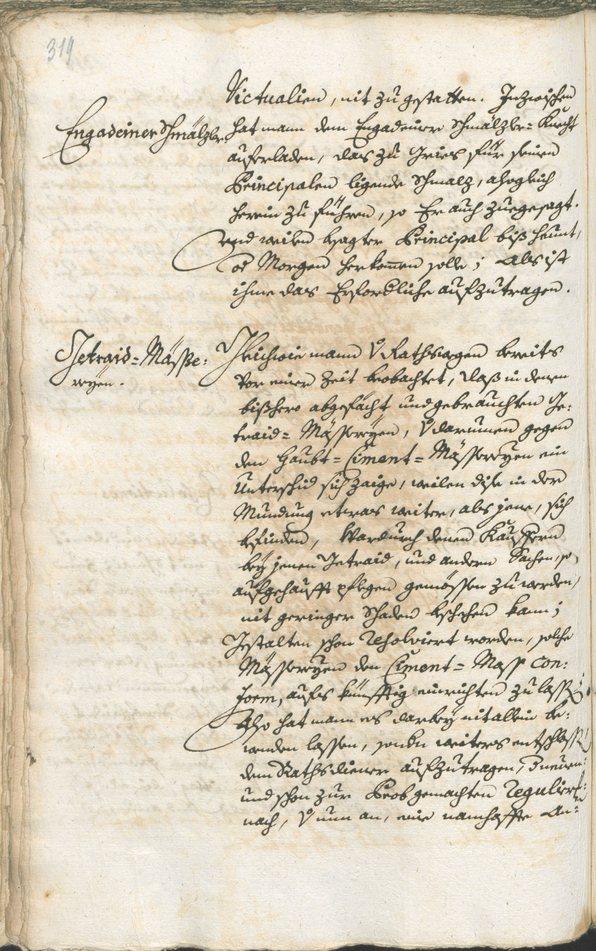 319
Victualien, nit zu gestatten. Inzwischen
Engadeiner Schmälzler
hat mann dem Engadeiner Schmälzler- Knecht
auferladen, das zu Gries für seinen
Principalen ligende Schmalz, alsogleich
herein zu führen, so Er auch zuegesagt.
und weilen besagter Principal biß heünt,
od Morgen herkomen solle; Als ist
ihme das Erforderliche aufzutragen.
Getraid-Mässe-
reyen.
Gleichwie mann V Rathswegen bereits
vor einer Zeit beobachtet, daß in denen
bißhero abgefächt und gebrauchten Ge-
traid- Mässereyen, V darumen gegen
den Haubt- Ciment- Mässereyen ein
Unterschid sich zaige, weilen dise in der
Mündung etwas weiter, als jene, sich
befinden, Wardurch denen Kauffern
bey jenen Getraid, und andern Sachen, so
aufgehaufft pflegen gemössen zu werden,
nit geringer Schaden beschehen kann;
Gestalten schon resolviert worden, solche
Mässereyen den Ciment- Mass con-
form, aufs künfftig einrichten zu lassen;
Also hat mann es darbey nit allein be-
wenden lassen, sondern weiters entschlossen
dem Rathsdiener aufzutragen,
und schon zur Prob gemachten
nach, V nun an, eine namhaffte An-